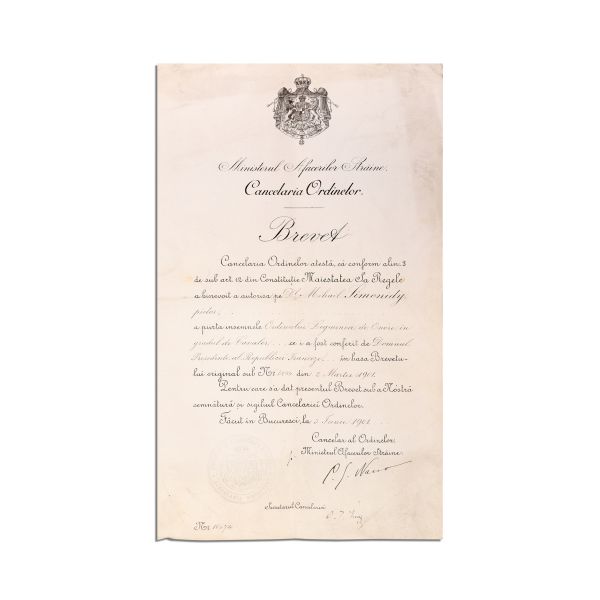 Ministerul Afacerilor Straine.
Cancelaria Ordinelor.
Brevet
Cancelaria Ordinelor atestă, că conform alin. 3
de sub art. 12 din Constituție Maiestatea Sa Regele
a binevoit a autorisa pe Dl Mihail Simonidy
pictor,
a purta insemnele Ordinului Legiunea de Onore, in
gradul de Cavaler ce i a fost conferit de Domnul
Presidinte al Republicei Franceze în basa Brevetu-
lui original sub Nr din 2 Martie 1901.
Pentru care s'a dat presentul Brevet sub a Nóstră
semnătură și sigilul Cancelariei Ordinelor.
Făcut în Bucuresci, la 3 Iunie 1901
Cancelar al Ordinelor,
Ministrul Afacerilor Straine.
Secretarul Cancelariei
Nr.